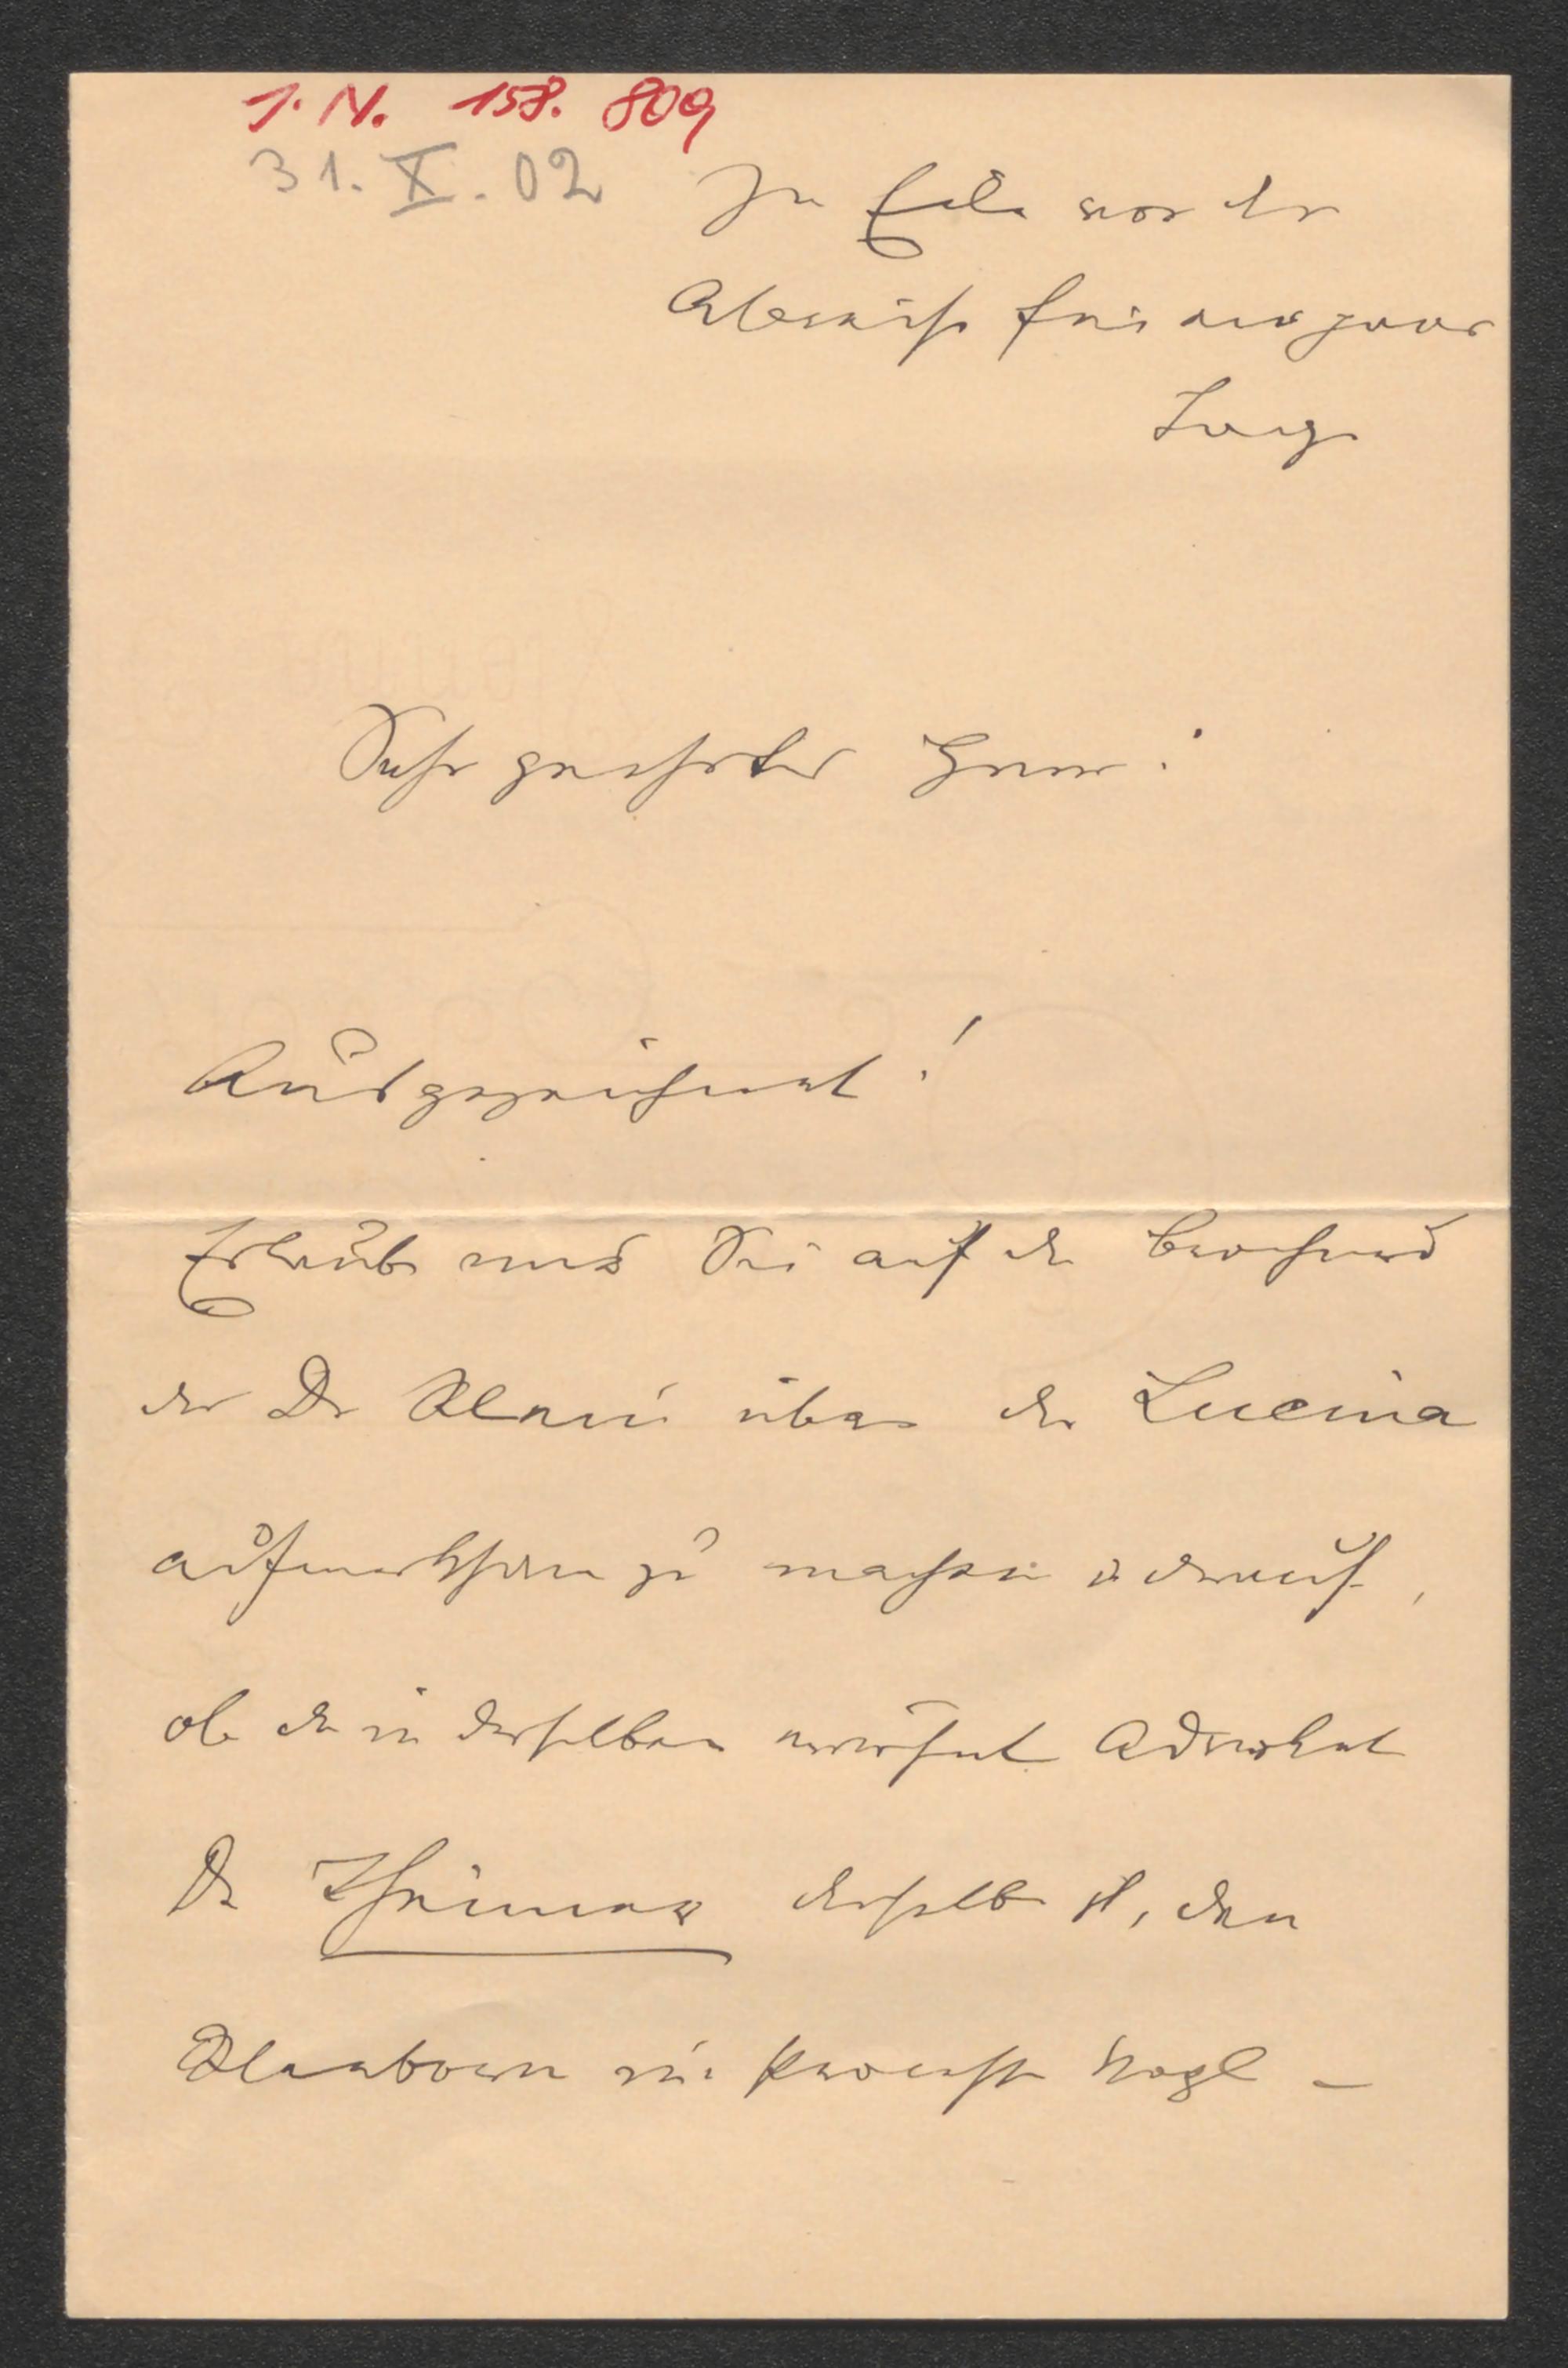 I. N. 158. 809
31. X. 02
In Eile vor der
Abreise für ein paar
Tage
Sehr geehrter Herr!
Ausgezeichnet!
Erlaube mir Sie auf die
der Dr über die Lucina
aufmerksam zu machen u darauf,
ob der in derselben erwähnte Advokat
Dr derselbe ist, den
im Processe Vogl –